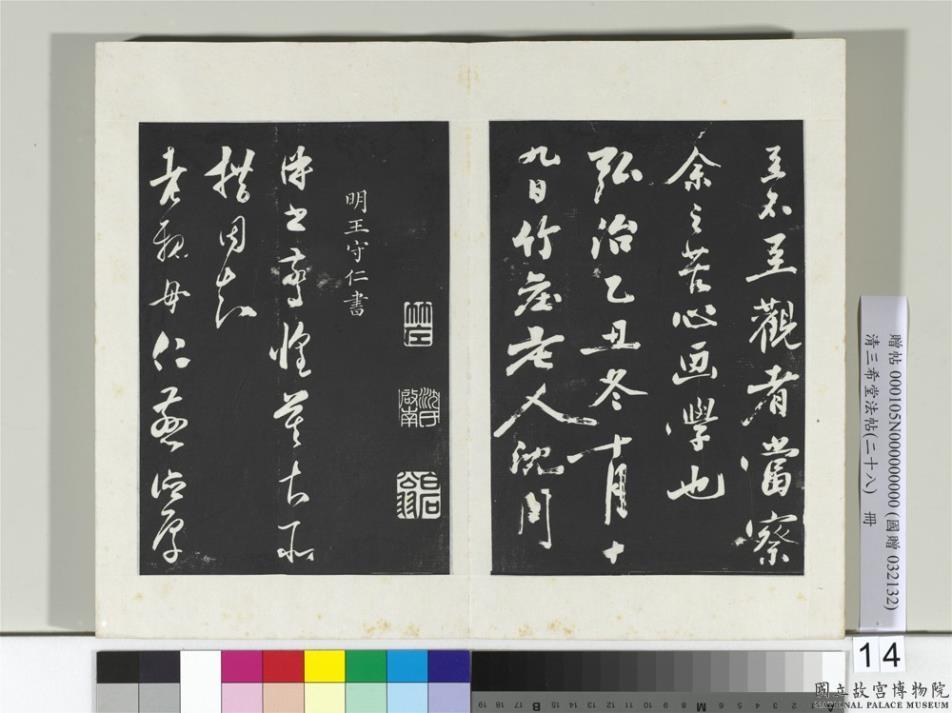 至不至觀者當察
余之苦心画學也
弘治乙丑冬十月十
九日竹庄老人沈周
竹庄
沈氏啟南
白石翁
明王守仁書
得書驚惶莫知所
措固知
老親母仁慈德厚
贈帖 000105N000000000 (國贈 032132)
清三希堂法帖(二十八) 冊
14
國立故宮博物院
NATIONAL PALACE MUSEUM